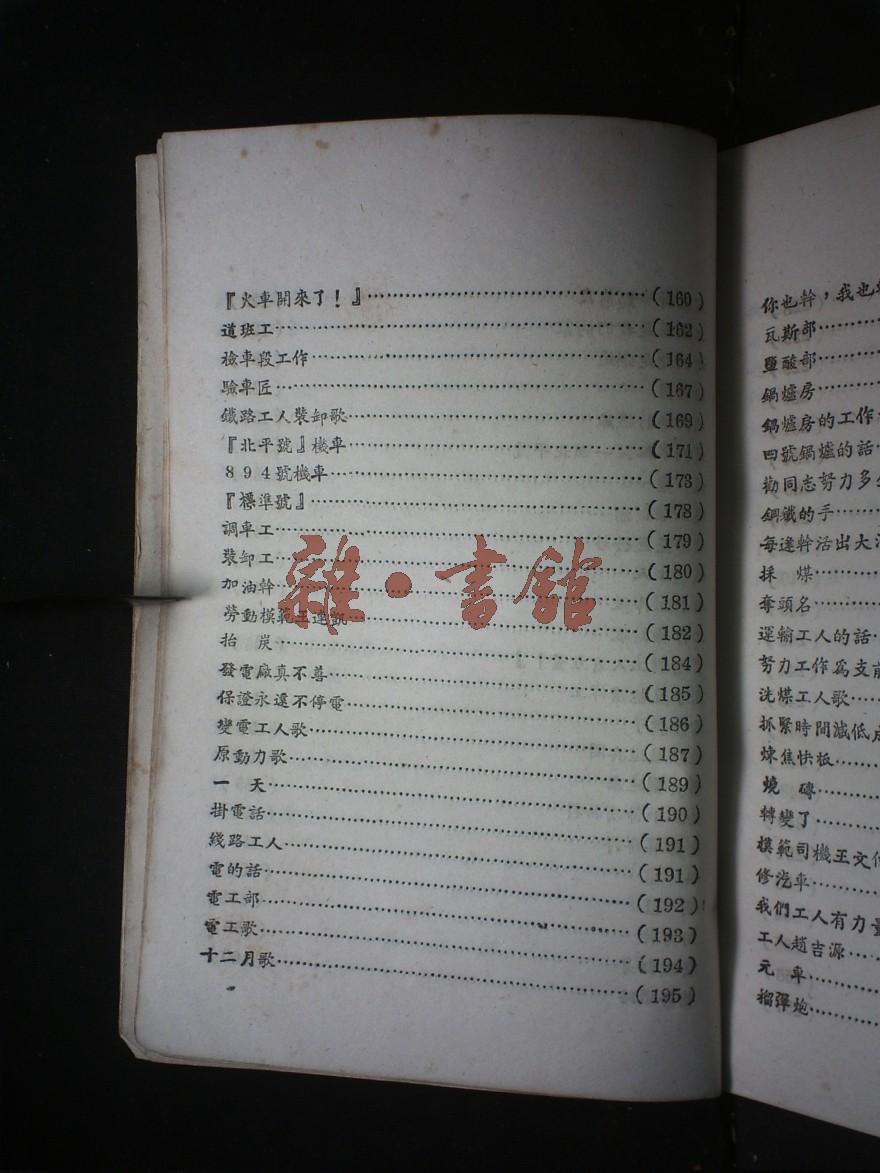 『火車開來了！』……(160)
道班工……(162)
檢車段工作……(164)
驗車匠……(167)
鐵路工人裝卸歌……(169)
『北平號』機車……(171)
８９４號機車……(173)
『標準號』……(178)
調車工……(179)
裝卸工……(180)
加油幹……(181)
勞動模範王連凱……(182)
抬　炭……(184)
發電廠真不善……(185)
保證永遠不停電……(186)
變電工人歌……(187)
原動力歌……(189)
一　天……(190)
掛電話……(191)
綫路工人……(191)
電的話……(192)
電工部……(193)
電工歌……(194)
十二月歌……(195)
雜·書館
你也幹，我也
瓦斯部……
鹽酸部……
鍋爐房……
鍋爐房的工作
四號鍋爐的話…
勸同志努力多
鋼鐵的手……
每達幹活出大
採　煤……
奪頭名……
運輸工人的話…
努力工作爲支前
洗煤工人歌……
抓緊時間減低成
煉焦快板……
燒　磚……
轉變了……
模範司機王文
修汽車……
我們工人有力量
工人趙吉源……
元　車……
榴彈炮……